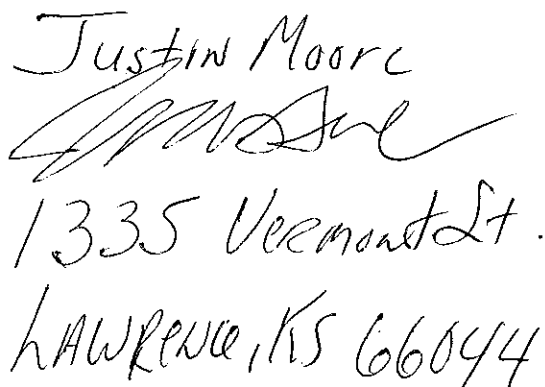 Justin Moore
1335 Vermont St.
LAWRENCE, KS 66044